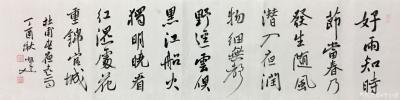 好雨知時
節當春乃
發生隨風
潜入夜潤
物細無聲
野逕雲俱
黑江船火
獨明曉看
紅濕處花
重錦官城
杜甫春夜喜雨
丁酉秋